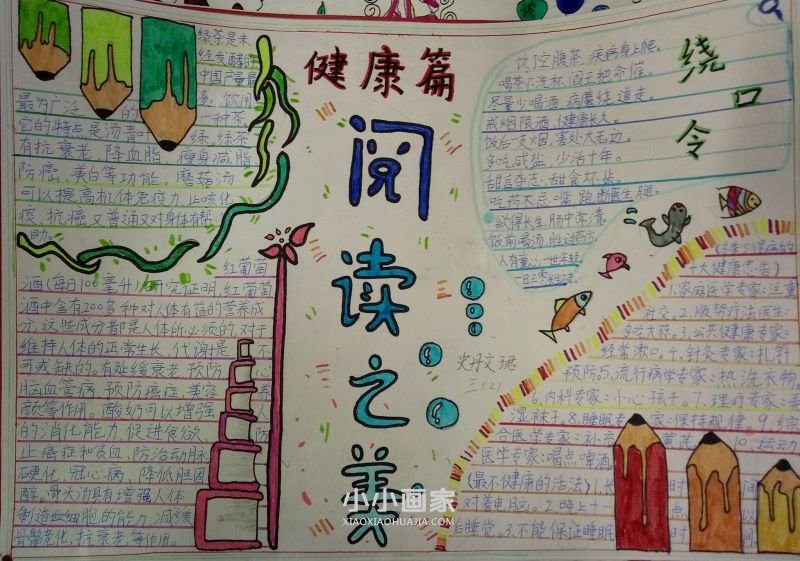 健康篇
阅读之美
绿茶是未
经发酵的
中国产量最
多、饮用
最为广泛的一种茶,
它的特点是汤青叶绿,绿茶
有抗衰老,降血脂,瘦身减脂,
防癌,美白等功能。蘑菇汤
可以提高机体免疫力,止咳化
痰,抗癌又普通又对身体有帮
助。
红葡萄
酒(每日100毫升)研究证明,红葡萄
酒中含有200多种对人体有益的营养成
分,这些成分都是人体所必须的,对于
维持人体的正常生长、代谢是不
可或缺的。有延缓衰老,预防心
脑血管病,预防癌症,美容养
颜等作用。酸奶可以增强
的消化能力,促进食欲,防
止癌症和贫血,防治动脉
硬化,冠心病,降低胆固
醇。骨头汤具有增强人体
制造血细胞的能力,减缓
骨骼老化,抗衰老等作用。
史丹文珺
三(2)
绕口令
饮了空腹茶,疾病身上爬。
喝茶不洗杯,阎王把命催。
尽量少喝酒,病魔绕道走。
戒烟限酒,健康长久。
饭后一支烟,害处大无边。
多吃咸盐,少活十年。
甜言夺志,甜食坏齿。
吃药不忌嘴,跑断医生腿。
欲得长生,肠中常清。
饭前喝汤,胜过药方。
人有童心,一世年轻。
一日三枣,长生不老。
十大健康忠告)
1.家庭医学专家:注重
社交。2.顺势疗法医生:
多吃大蒜。3.公共健康专家:
经常漱口。4.针灸专家:扎针
预防。5.流行病学专家:热洗衣物
6.内科专家:小心孩子。7.理疗专家:
湿袜子。8.睡眠专家:保持规律。9.综
合医学专家:补充黄芪。10.运动
医学专家:喝点啤酒。
(最不健康的活法)1.长时间
对着电脑。2.晚上十一点
睡觉。3.不能保证睡眠
小小画家
XIAOXIAOHUAJIA.COM